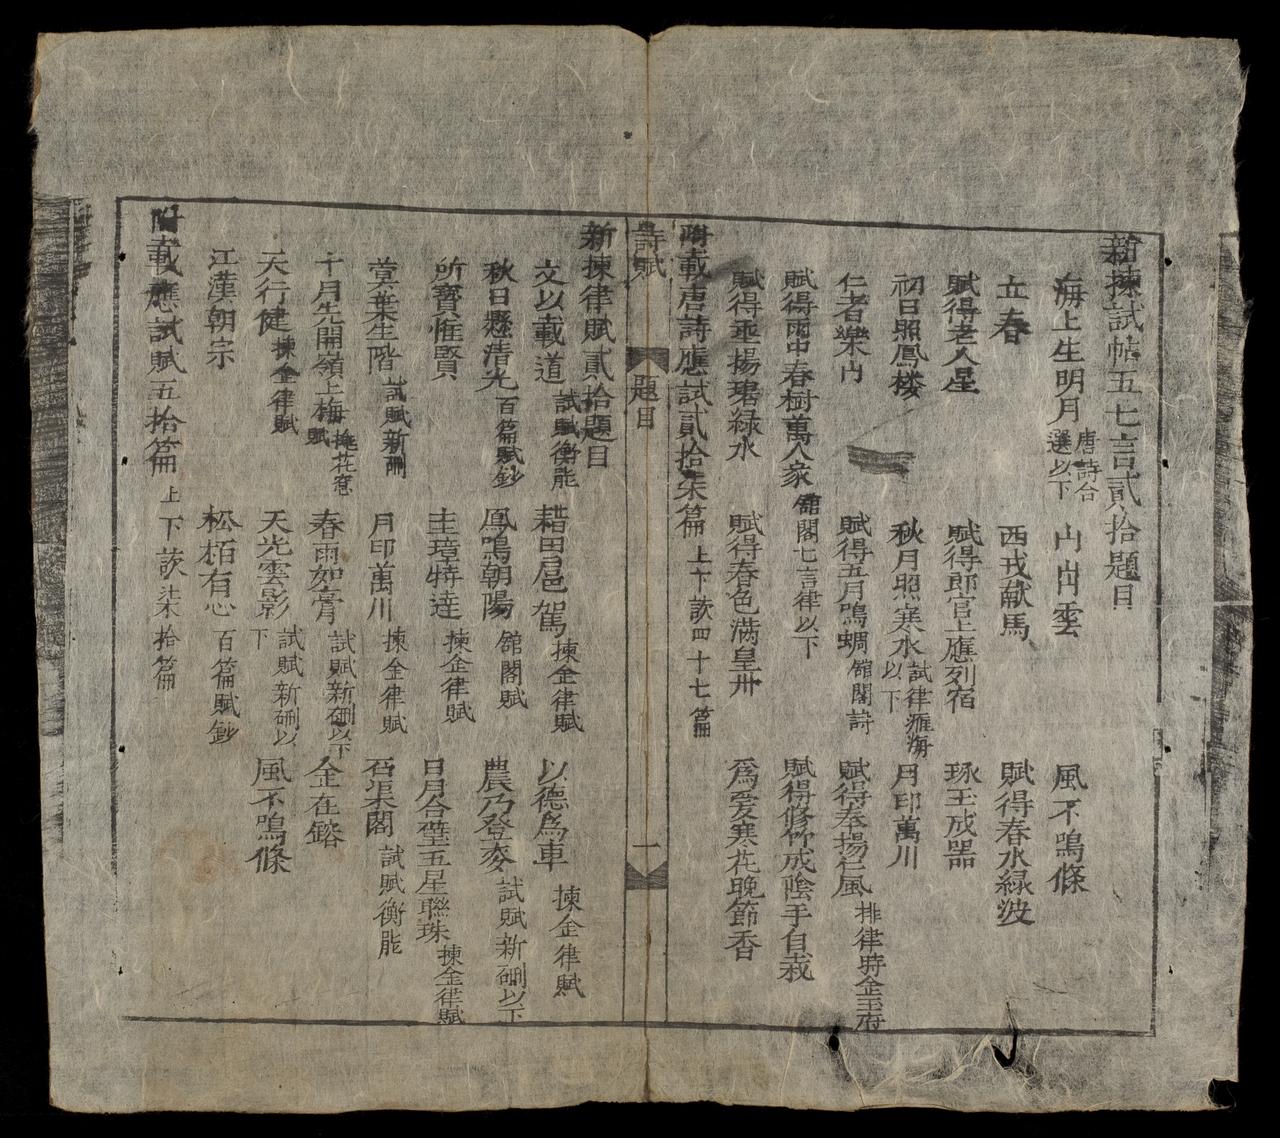 新揀試帖五七言貳拾題目
海上生明月 唐詩合選以下 山出雲 風不鳴條
立春 西戎献馬 賦得春水緑波
賦得老人星 賦得郎官上應列宿 琢玉成器
初日照鳳楼 秋月照寒水 試律淵海以下 月印萬川
仁者樂山 賦得五月鳴蜩 舘閣詩 賦得奉揚仁風 排律時金玉府
賦得雨中春樹萬人家 舘閣七言律以下 賦得修竹成陰手自栽
賦得垂楊碧緑水 賦得春色满皇州 爲爱寒花晚節香
附載唐詩應試貳拾柒篇 上下試四十七篇
詩賦 題目 一
新揀律賦貳拾題目
文以載道 試賦衡能 耤田邑駕 揀金律賦 以德爲車 揀金律賦
秋日懸清光 百篇賦鈔 鳳鳴朝陽 舘閣賦 農乃登麥 試賦新硎以下
所寳惟賢 圭璋特逹 揀金律賦 日月合璧五星聯珠 揀金律賦
蓂葉生階 試賦新硎 月印萬川 揀金律賦 石渠閣 試賦衡能
十月先開嶺上梅 挑花窓賦 春雨如膏 試賦新硎以下 金在鎔
天行健 揀金律賦 天光雲影 試賦新硎以下 風不鳴條
江漢朝宗 松栢有心 百篇賦鈔
附載應試賦五拾篇 上下試柒拾篇